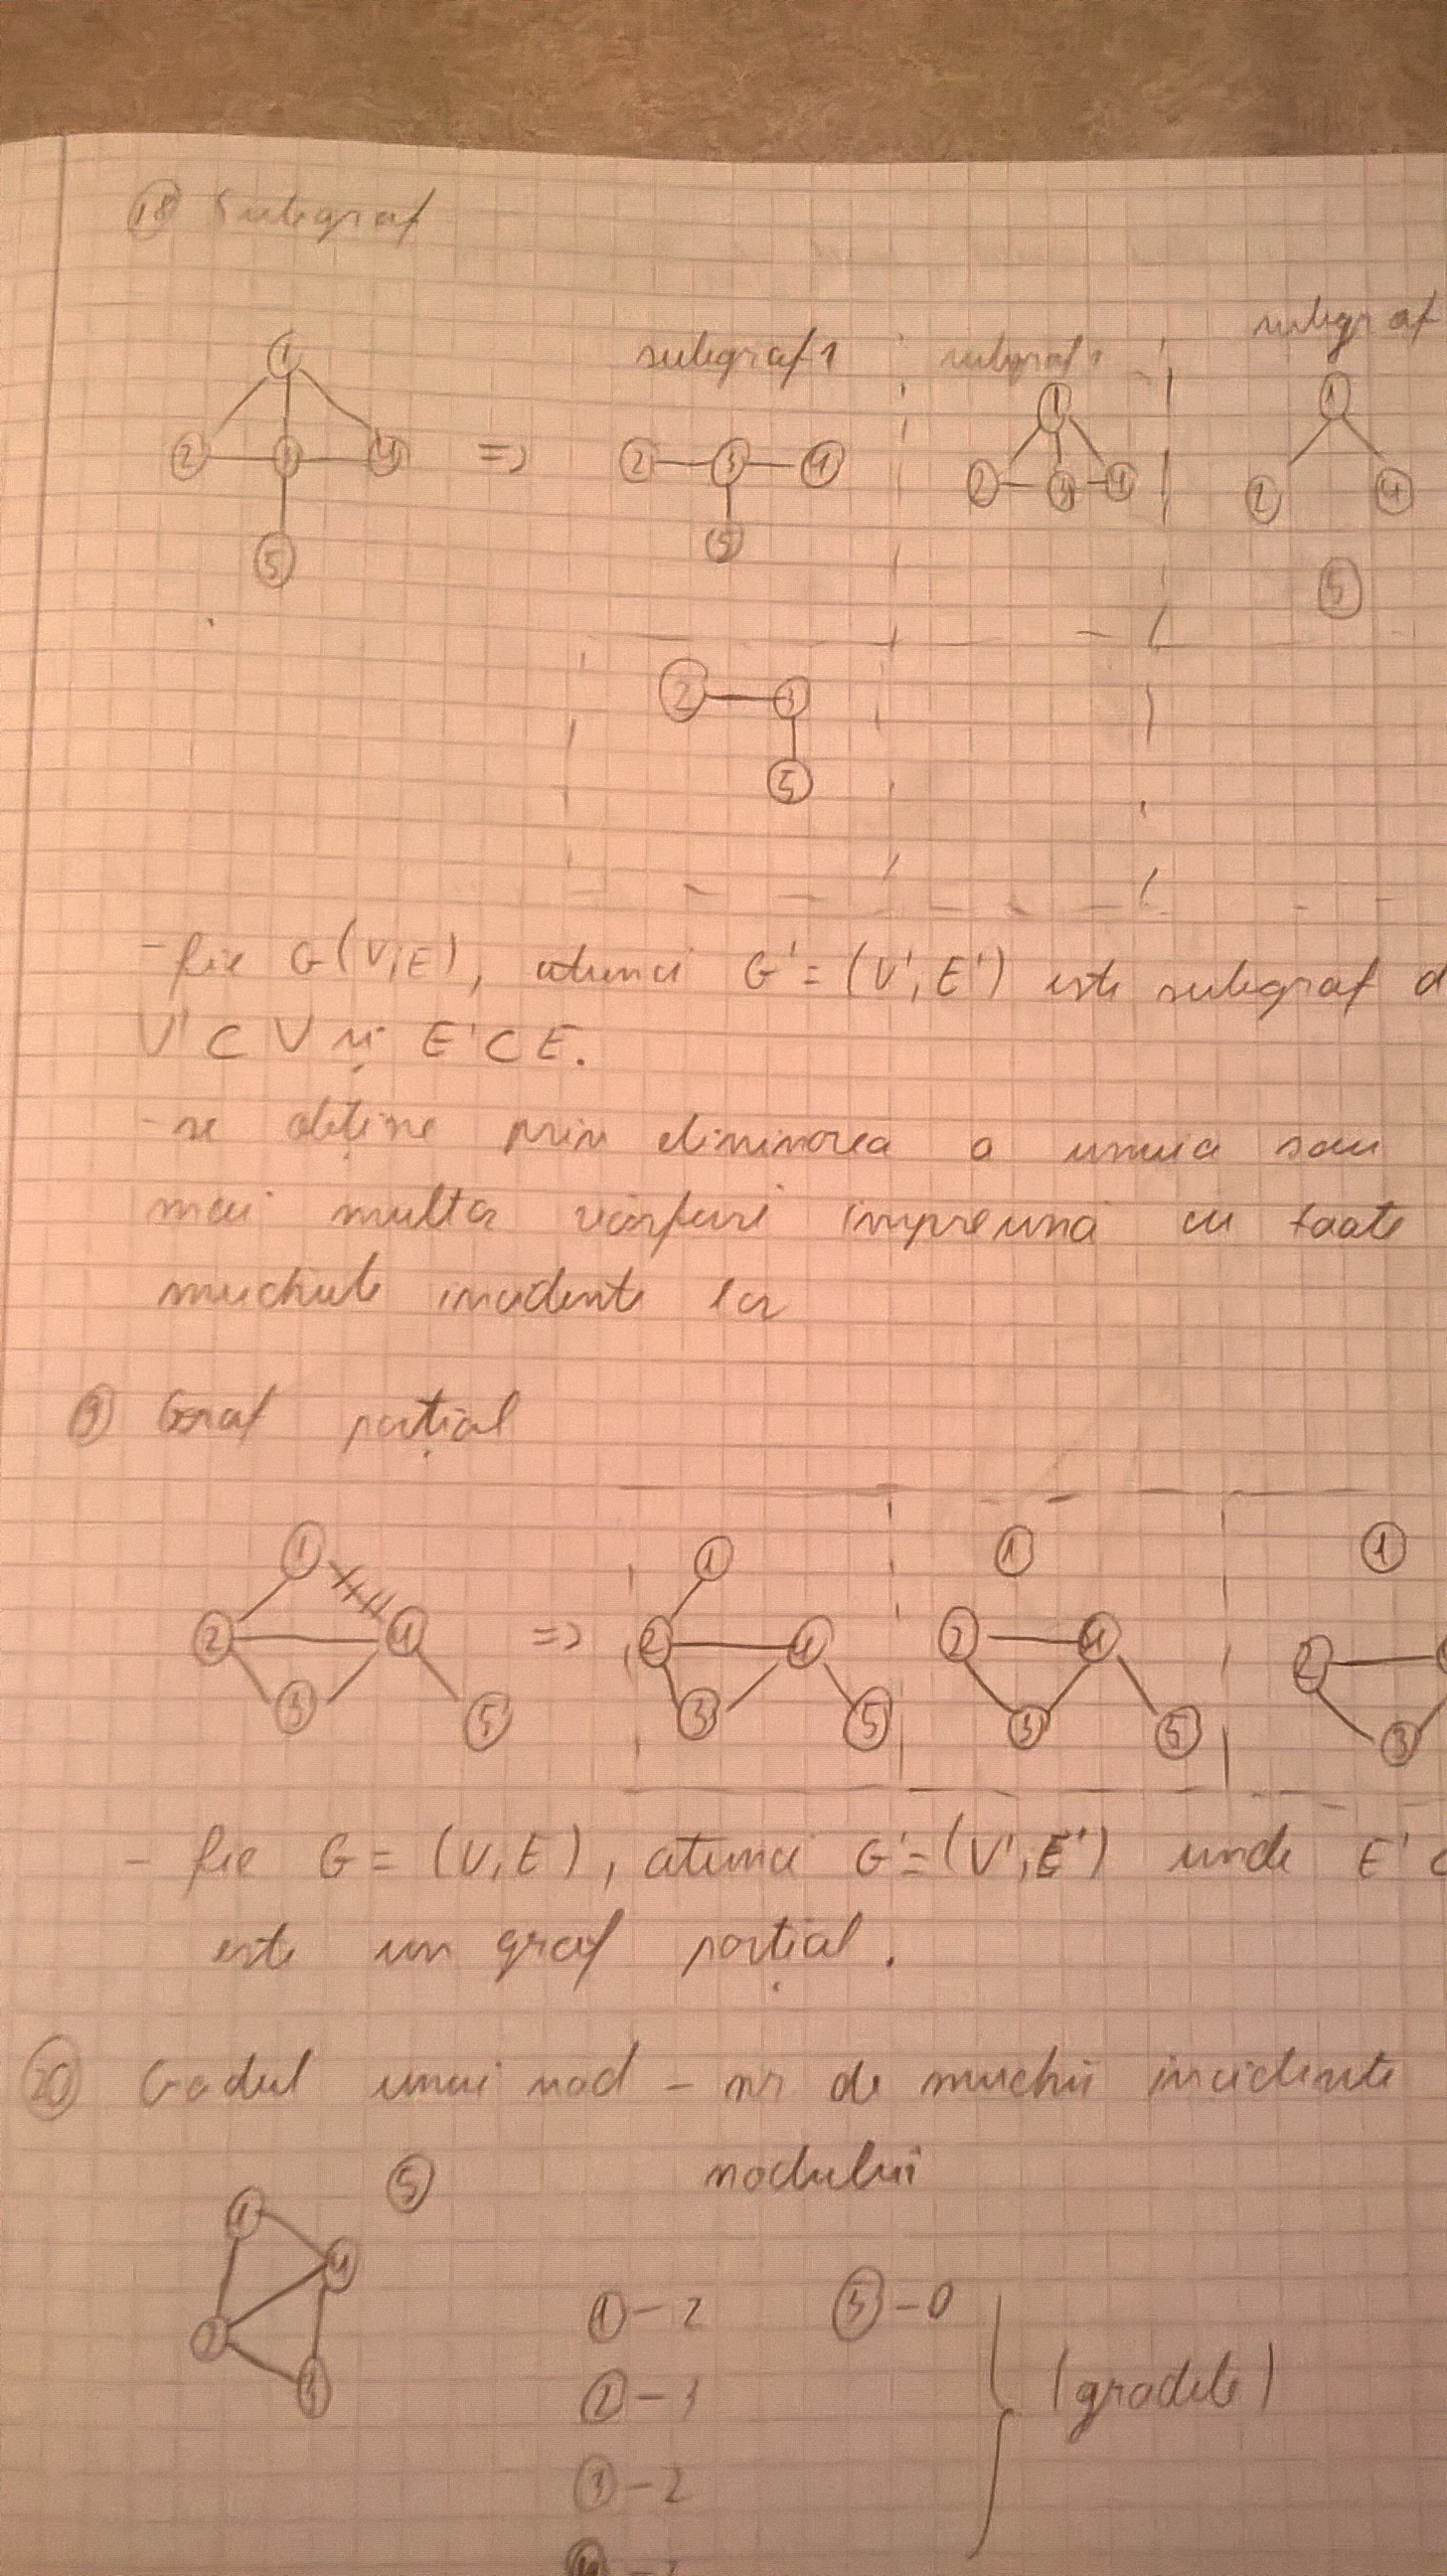 18 Subgraf
subgraf 1 subgraf subgraf
1 1 1
2 3 4 => 2 3 4 2 3 4 2 4
5 5 5
2 3
5
- fie G(V,E), atunci G' = (V', E') este subgraf d
V' ⊂ V și E' ⊂ E.
- se obține prin eliminarea a unuia sau
mai multa vârfuri împreună cu toate
muchiile incidente la
9 Graf parțial
1 1 1 1
2 4 => 2 4 2 4 2
3 5 3 5 3 5 3
- fie G = (V,E), atunci G' = (V', E') unde E' ⊂
este un graf parțial.
20 Gadul unui nod - nr de muchii incidente
nodului
5
1
4
2
3
1 - 2 5 - 0
2 - 3 (gradele)
3 - 2
4